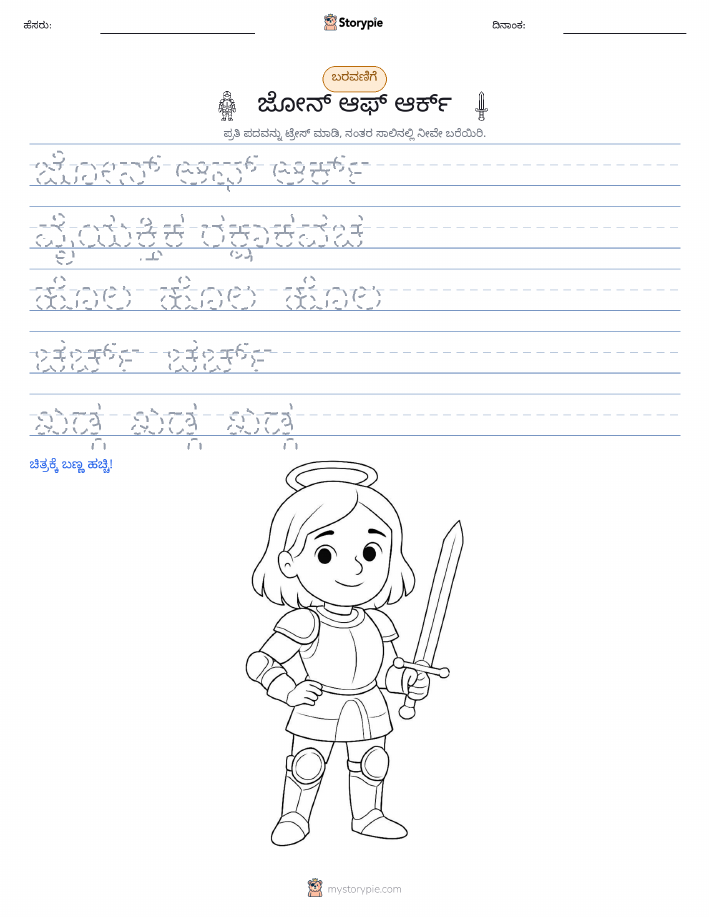 ಹೆಸರು:
Storypie
ದಿನಾಂಕ:
ಬರವಣಿಗೆ
ಜೋನ್ ಆಫ್ ಆರ್ಕ್
ಪ್ರತಿ ಪದವನ್ನು ಟ್ರೇಸ್ ಮಾಡಿ, ನಂತರ ಸಾಲಿನಲ್ಲಿ ನೀವೇ ಬರೆಯಿರಿ.
ಜೋನ್ ಆಫ್ ಆರ್ಕ್
ವೈಯಕ್ತಿಕ ರಕ್ಷಾಕವಚ
ಹೊಲ ಹೊಲ ಹೊಲ
ಚರ್ಚ್ ಚರ್ಚ್
ಖಡ್ಗ ಖಡ್ಗ ಖಡ್ಗ
ಚಿತ್ರಕ್ಕೆ ಬಣ್ಣ ಹಚ್ಚಿ!
mystorypie.com